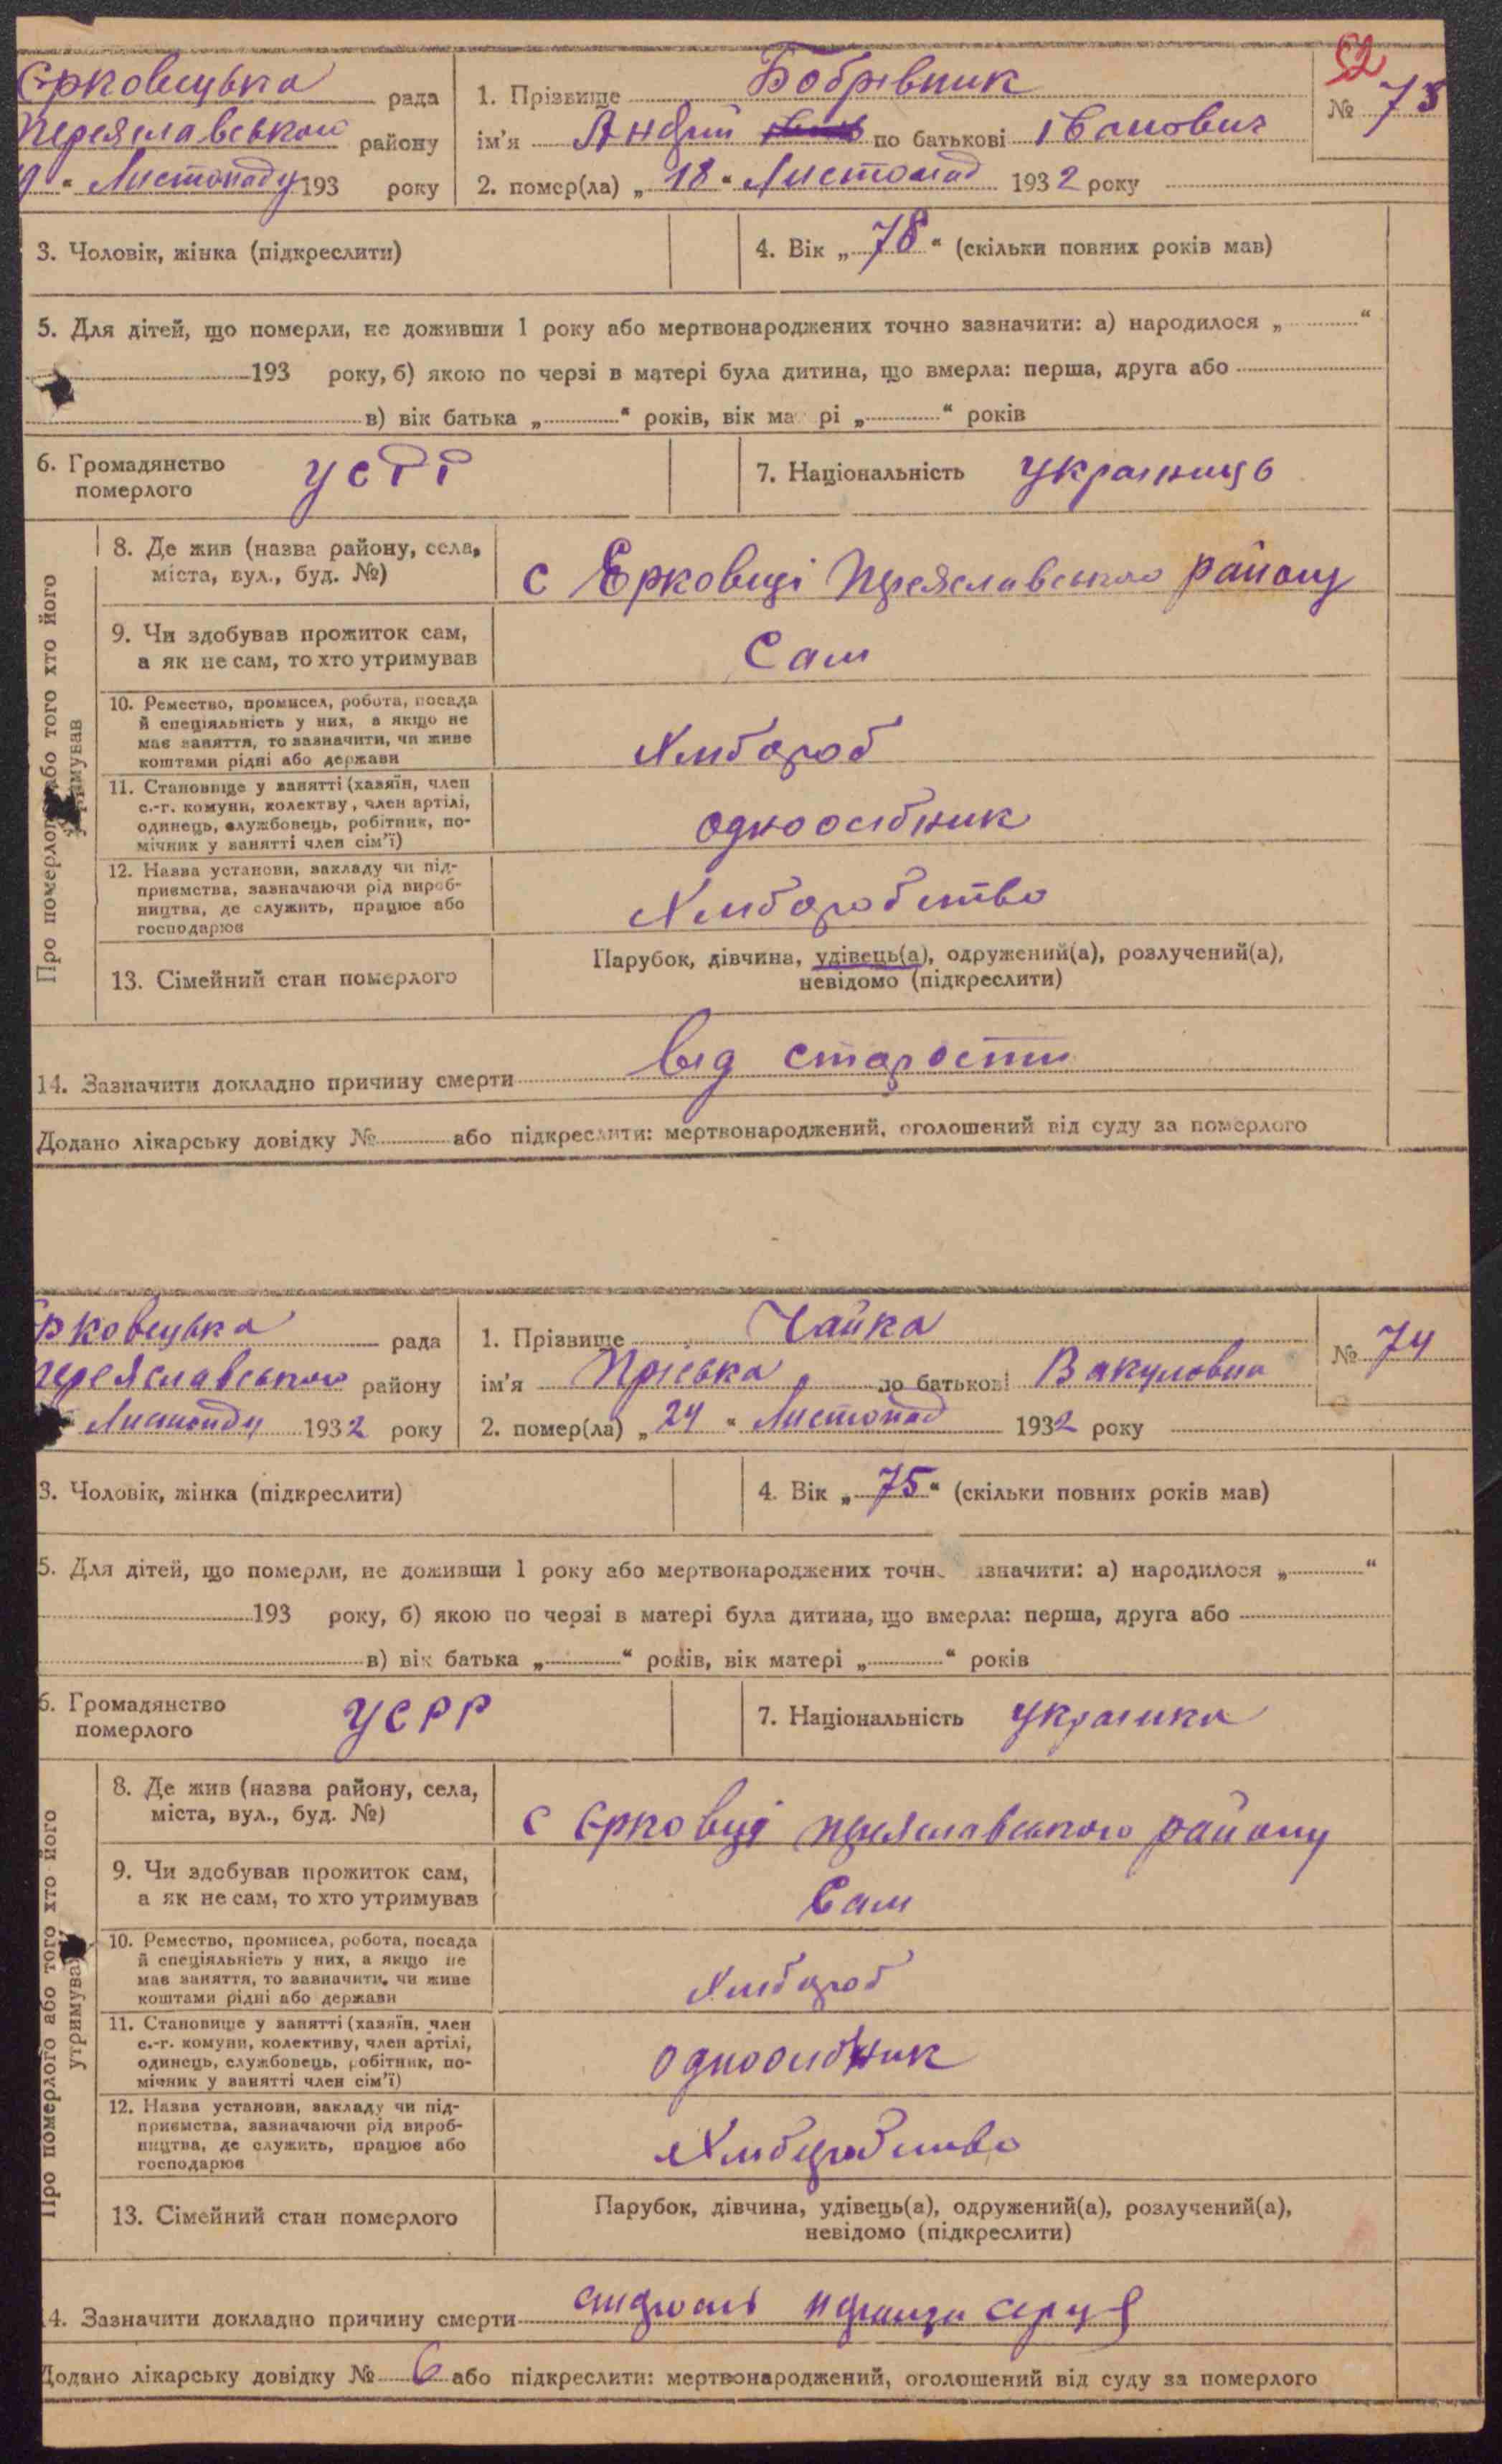 52
Єрковецька рада
Переяславського району
9 " Листопаду 193 року
1. Прізвище Бобрівник
№ 73
ім'я Андрій по батькові Іванович
2. помер(ла) „ 18 " Листопад 1932 року
3. Чоловік, жінка (підкреслити)
4. Вік „ 78 " (скільки повних років мав)
5. Для дітей, що померли, не доживши 1 року або мертвонароджених точно зазначити: а) народилося „ "
193 року, б) якою по черзі в матері була дитина, що вмерла: перша, друга або
в) вік батька „ " років, вік ма рі „ " років
6. Громадянство померлого УСРР
7. Національність українець
Про померлого або того хто його утримував
8. Де жив (назва району, села, міста, вул., буд. №)
с Єрковці Переяславського району
9. Чи здобував прожиток сам, а як не сам, то хто утримував
Сам
10. Ремество, промисел, робота, посада й спеціяльність у них, а якщо не має заняття, то зазначити, чи живе коштами рідні або держави
Хлібороб
11. Становище у занятті (хазяїн, член с.-г. комуни, колектву, член артілі, одинець, службовець, робітник, помічник у занятті член сім'ї)
одноосібник
12. Назва установи, закладу чи підприємства, зазначаючи рід виробництва, де служить, працює або господарює
Хліборобство
13. Сімейний стан померлого
Парубок, дівчина, удівець(а), одружений(а), розлучений(а),
невідомо (підкреслити)
14. Зазначити докладно причину смерти від старости
Додано лікарську довідку № або підкреслити: мертвонароджений, оголошений від суду за померлого
рковецька рада
Переяславського району
Листопаду 1932 року
1. Прізвище Чайка
№ 74
ім'я Пріська по батькові Вакуловна
2. помер(ла) „ 24 " Листопад 1932 року
3. Чоловік, жінка (підкреслити)
4. Вік „ 75 " (скільки повних років мав)
5. Для дітей, що померли, не доживши 1 року або мертвонароджених точн зазначити: а) народилося „ "
193 року, б) якою по черзі в матері була дитина, що вмерла: перша, друга або
в) вік батька „ " років, вік матері „ " років
6. Громадянство померлого УСРР
7. Національність українка
Про померлого або того хто його утримував
8. Де жив (назва району, села, міста, вул., буд. №)
с Єрковці Переяславського району
9. Чи здобував прожиток сам, а як не сам, то хто утримував
Сам
10. Ремество, промисел, робота, посада й спеціяльність у них, а якщо не має заняття, то зазначити, чи живе коштами рідні або держави
Хлібороб
11. Становище у занятті (хазяїн, член с.-г. комуни, колективу, член артілі, одинець, службовець, робітник, помічник у занятті член сім'ї)
одноосібник
12. Назва установи, закладу чи підприємства, зазначаючи рід виробництва, де служить, працює або господарює
Хліборобство
13. Сімейний стан померлого
Парубок, дівчина, удівець(а), одружений(а), розлучений(а),
невідомо (підкреслити)
14. Зазначити докладно причину смерти серця
Додано лікарську довідку № 6 або підкреслити: мертвонароджений, оголошений від суду за померлого